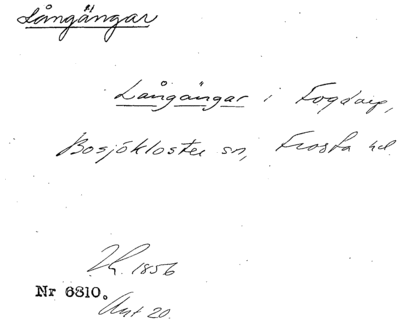 Långängar
Långängar i Fogdarp,
Bosjökloster sn, Frosta hd.
1856
Nr 6810.
Akt 20.